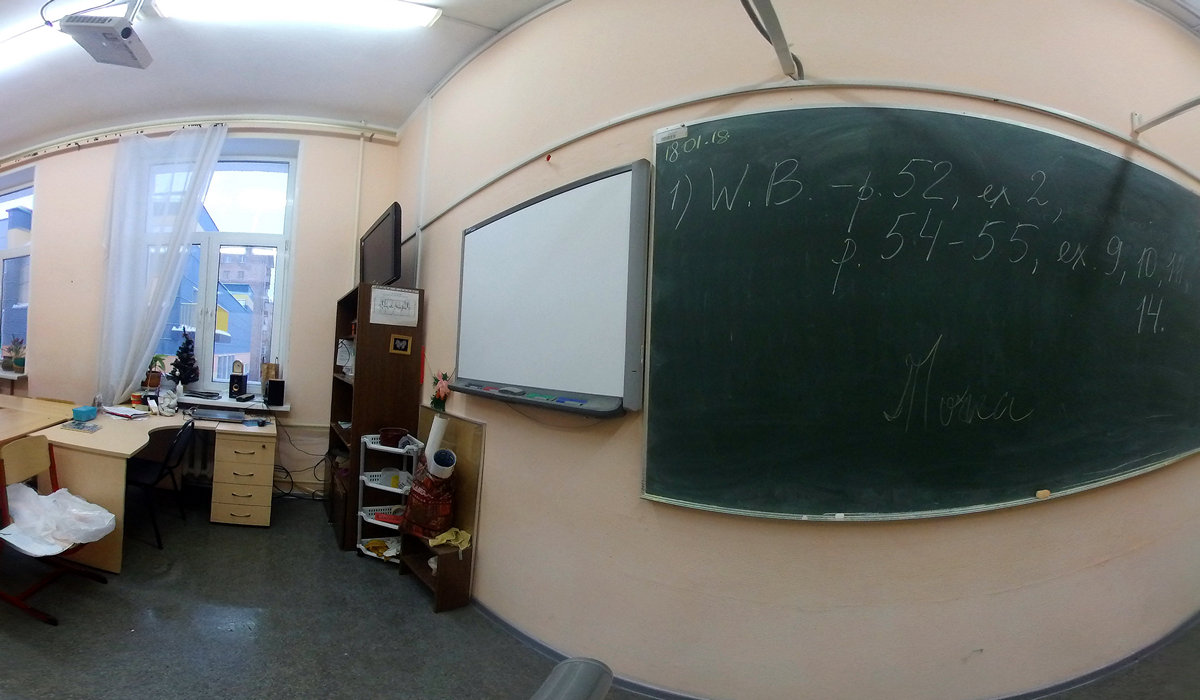 18.01.18
1) W.B. – p. 52, ex 2,
p. 54-55, ex. 9, 10, 11,
14.